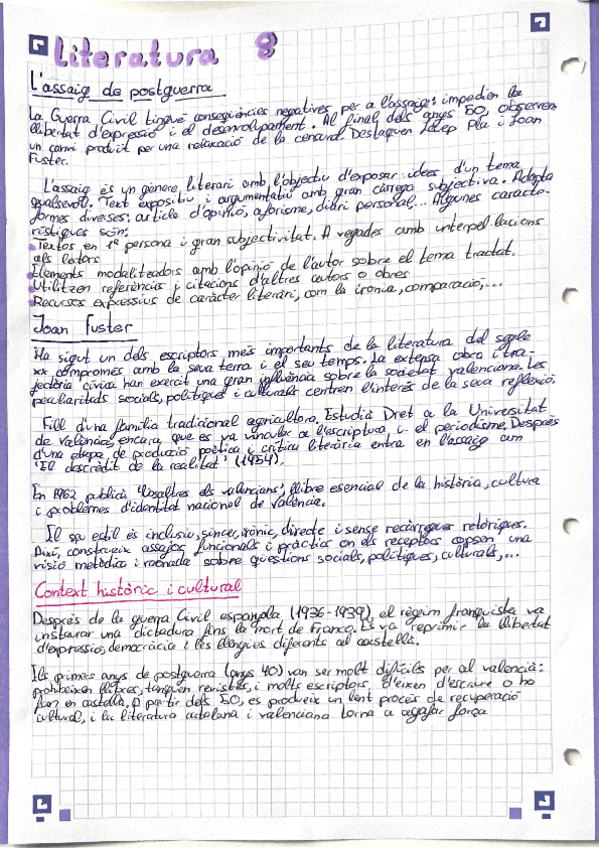 Literatura 8
L'assaig de postguerra
La Guerra Civil tingué conseqüències negatives per a l'assaig: impedien la
llibertat d'expressió i el desenvolupament. Al final dels anys 50, observem
un canvi produït per una relaxació de la censura. Destaquen Josep Pla i Joan
Fuster.
L'assaig és un gènere literari amb l'objectiu d'exposar idees d'un tema
qualsevol. Text expositiu i argumentatiu amb gran càrrega subjectiva. Adopta
formes diverses: article d'opinió, aforisme, diari personal... Algunes caracte-
rístiques són:
Textos en 1ª persona i gran subjectivitat. A vegades amb interpel·lacions
als lectors
Elements modalitzadors amb l'opinió de l'autor sobre el tema tractat.
Utilitzen referències i citacions d'altres autors o obres
Recursos expressius de caràcter literari, com la ironia, comparació,...
Joan Fuster
Ha sigut un dels escriptors més importants de la literatura del segle
xx compromès amb la seva terra i el seu temps. La extensa obra i tra-
jectòria cívica han exercit una gran influència sobre la societat valenciana. Les
peculiaritats socials, polítiques i culturals centren l'interés de la seva reflexió.
Fill d'una família tradicional agricultora. Estudià Dret a la Universitat
de València, encara que es va vincular a l'escriptura i el periodisme. Després
d'una etapa de producció poètica i crítica literària entra en l'assaig am
'El descrèdit de la realitat' (1954).
En 1962 publicà 'Nosaltres els valencians', llibre esencial de la història, cultura
i problemes d'identitat nacional de València.
El seu estil és inclusiu, sincer, irònic, directe i sense recàrregues retòriques.
Així, construeix assajos funcionals i pràctics on els receptors copsen una
visió metòdica i raonada sobre qüestions socials, polítiques, culturals,...
Context històric i cultural
Després de la guerra Civil espanyola (1936-1939) el règim franquista va
instaurar una dictadura fins la mort de Franco. Es va reprimir la llibertat
d'expressió, democràcia i les llengües diferents al castellà.
Els primers anys de postguerra (anys 40) van ser molt difícils per al valencià:
prohibeixen llibres, tanquen revistes, i molts escriptors deixen d'escriure o ho
fan en castellà. A partir dels 50, es produeix un lent procés de recuperació
cultural, i la literatura catalana i valenciana torna a agafar força